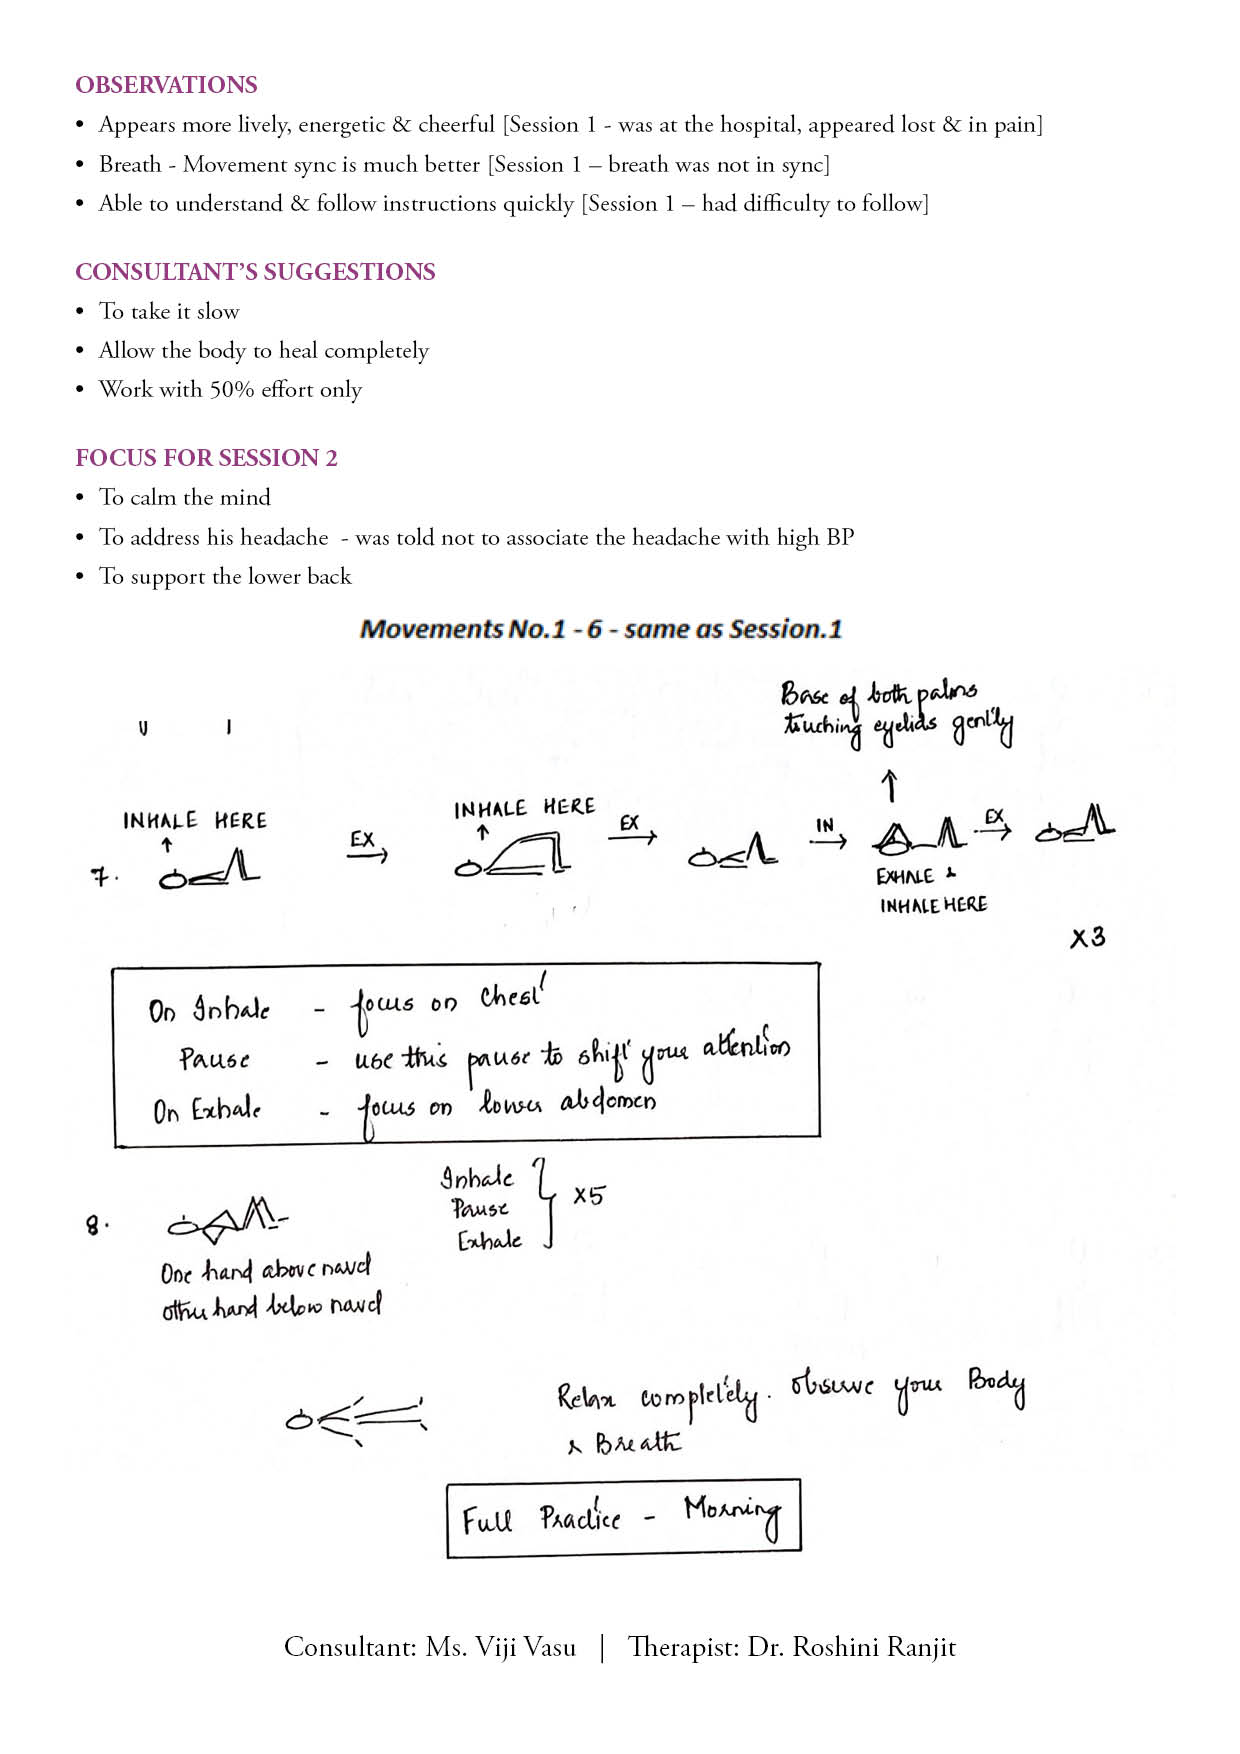 OBSERVATIONS
• Appears more lively, energetic & cheerful [Session 1 - was at the hospital, appeared lost & in pain]
• Breath - Movement sync is much better [Session 1 – breath was not in sync]
• Able to understand & follow instructions quickly [Session 1 – had difficulty to follow]
CONSULTANT'S SUGGESTIONS
• To take it slow
• Allow the body to heal completely
• Work with 50% effort only
FOCUS FOR SESSION 2
• To calm the mind
• To address his headache - was told not to associate the headache with high BP
• To support the lower back
Movements No.1 - 6 - same as Session.1
Base of both palms
touching eyelids gently
INHALE HERE
EX
INHALE HERE
EX
IN
EX
7.
EXHALE &
INHALE HERE
X3
On Inhale - focus on chest
Pause - use this pause to shift your attention
On Exhale - focus on lower abdomen
8.
Inhale
Pause
Exhale
X5
One hand above navel
other hand below navel
Relax completely. observe your Body
& Breath
Full Practice - Morning
Consultant: Ms. Viji Vasu | Therapist: Dr. Roshini Ranjit